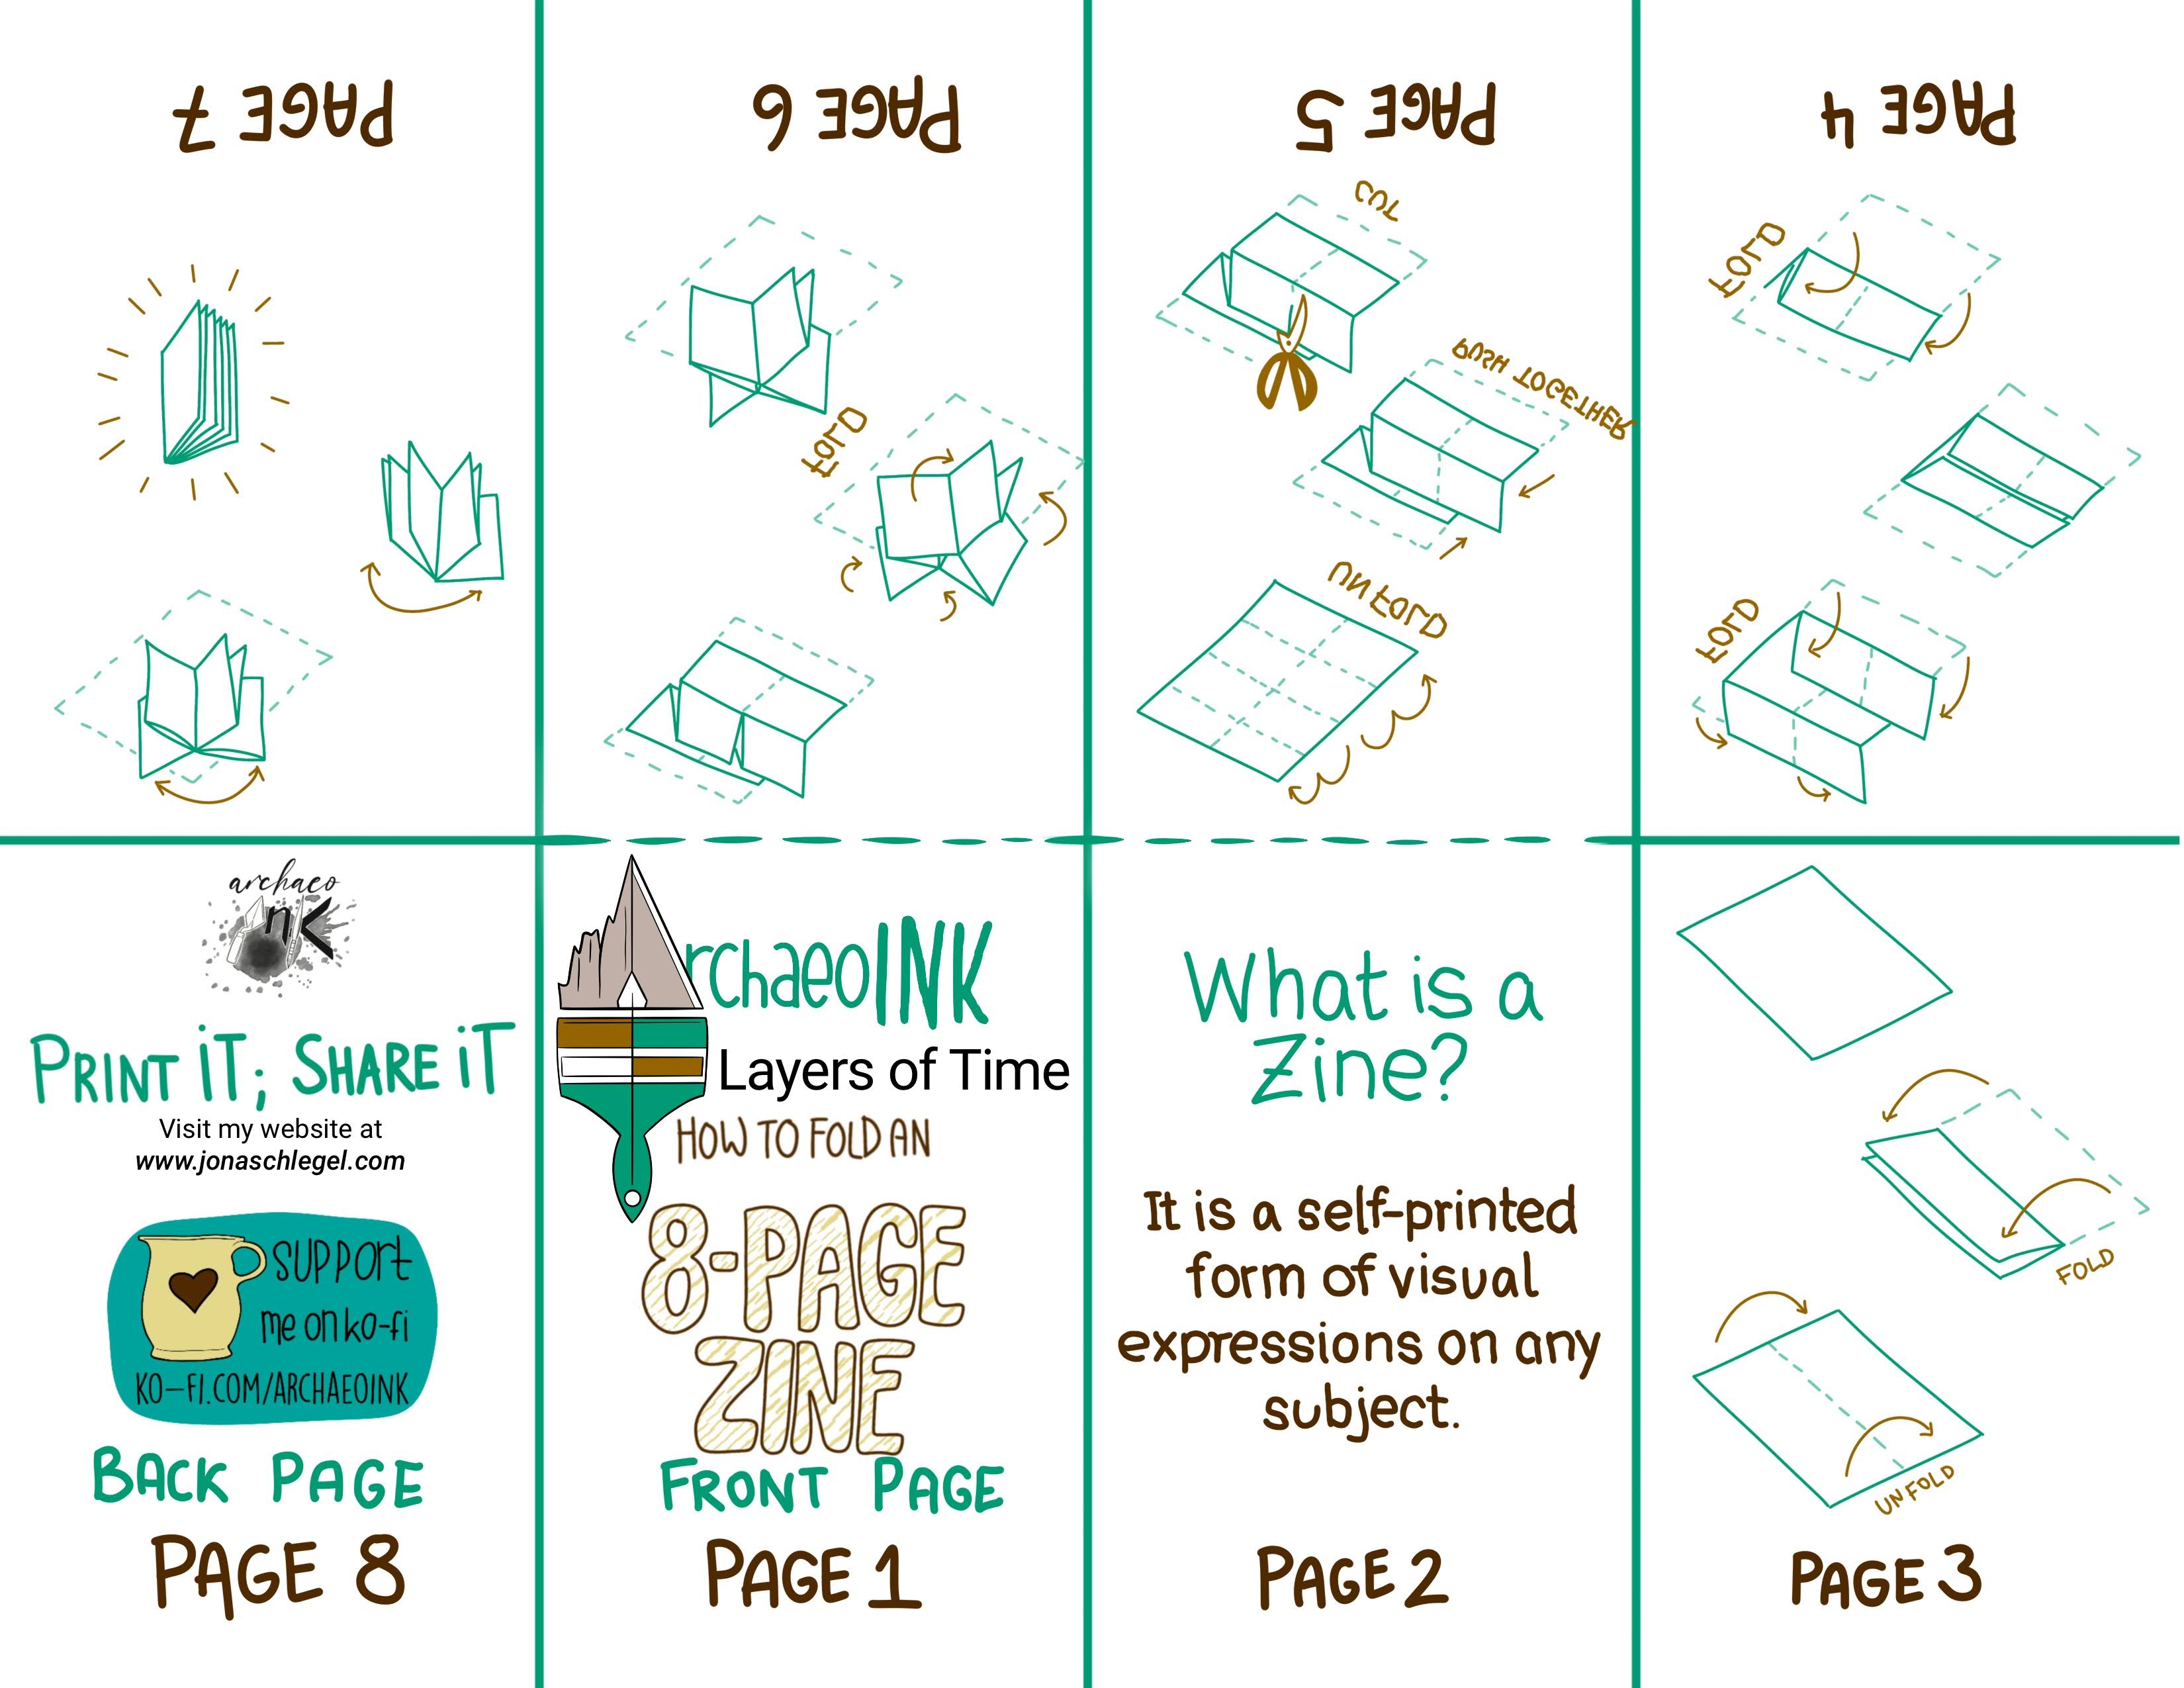 PAGE 7
PAGE 6
PAGE 5
PAGE 4
CUT
FOLD
PUSH TOGETHER
FOLD
UNFOLD
FOLD
archaeo
INK
PRINT IT; SHARE IT
Visit my website at
www.jonaschlegel.com
support
me on ko-fi
KO-FI.COM/ARCHAEOINK
BACK PAGE
PAGE 8
ArchaeoINK
Layers of Time
HOW TO FOLD AN
8-PAGE
ZINE
FRONT PAGE
PAGE 1
What is a
Zine?
It is a self-printed
form of visual
expressions on any
subject.
PAGE 2
FOLD
UNFOLD
PAGE 3